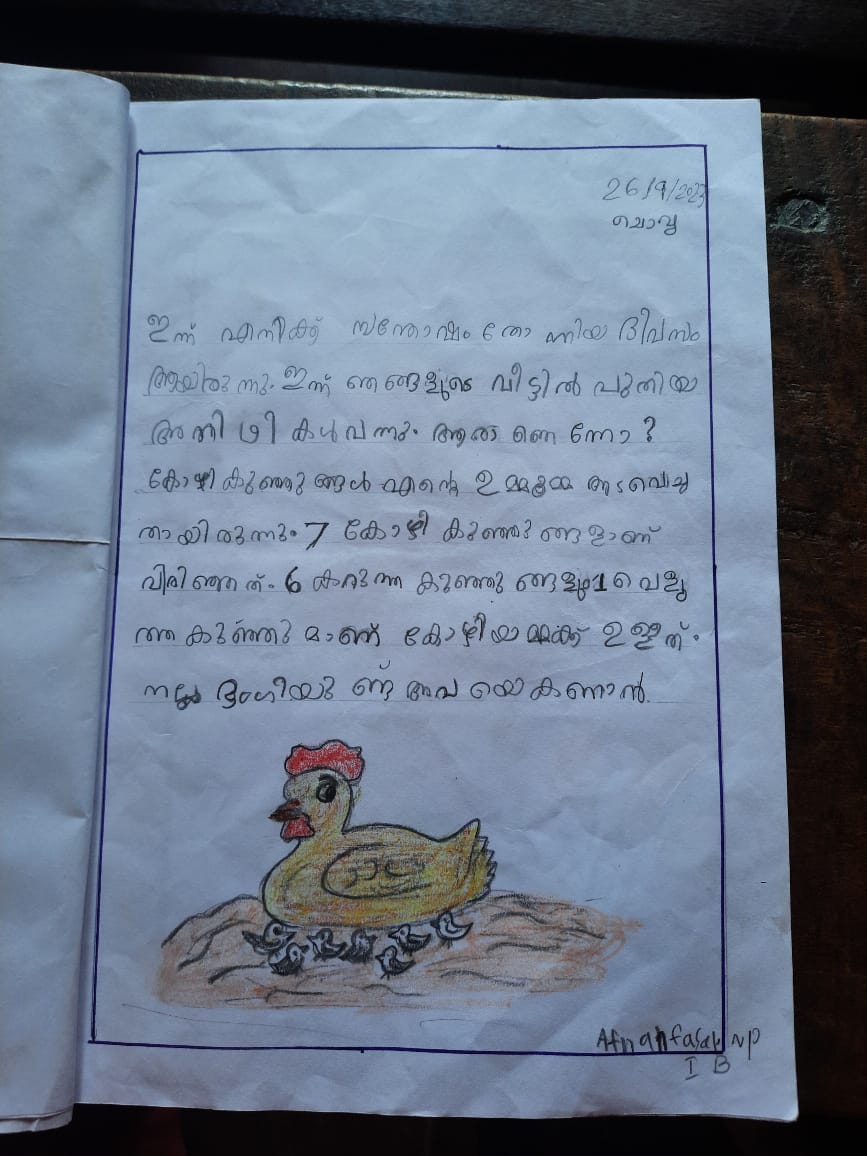 26/9/2023
ചൊവ്വ
ഇന്ന് എനിക്ക് സന്തോഷം തോ ന്നിയ ദിവസം
ആയിരു ന്നു. ഇന്ന് ഞങ്ങളുടെ വീട്ടിൽ പുതിയ
അതി ഥി കൾ വന്നു. ആരാ ണെ ന്നോ ?
കോഴി കുഞ്ഞു ങ്ങൾ എന്റെ ഉ മ്മൂമ്മ അടവെച്ച
തായി രുന്നു. 7 കോഴി കുഞ്ഞു ങ്ങളാണ്
വിരിഞ്ഞ ത്. 6 കറുത്ത കുഞ്ഞു ങ്ങളും 1 വെളു
ത്ത കുഞ്ഞു മാണ് കോഴിയ മ്മക്ക് ഉ ള്ളത് .
നല്ല ഭംഗിയു ണ്ട് അവ യെ കണാൻ.
Afnan NP
I B